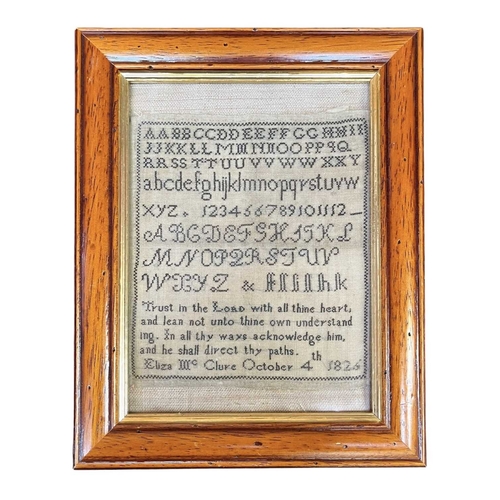 AABBCCDDEEFFGGHHII
JJKKLLMMNNOOPPQQ
RRSSTTUUVVWWXXY
abcdefghijklmnopqrstuvw
XYZ. 123456789101112
ABCDEFGHIJKL
MNOPQRSTUV
WXYZ &
Trust in the LORD with all thine heart,
and lean not unto thine own understand
ing. In all thy ways acknowledge him,
and he shall direct thy paths.
Eliza Mc Clure October 4th 1826